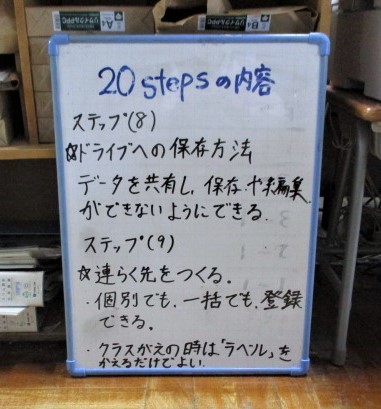 20 stepsの内容
ステップ(8)
☆ドライブへの保存方法
データを共有し、保存や編集
ができないようにできる。
ステップ(9)
☆連らく先をつくる。
・個別でも、一括でも、登録
できる。
・クラスがえの時は「ラベル」を
かえるだけでよい。